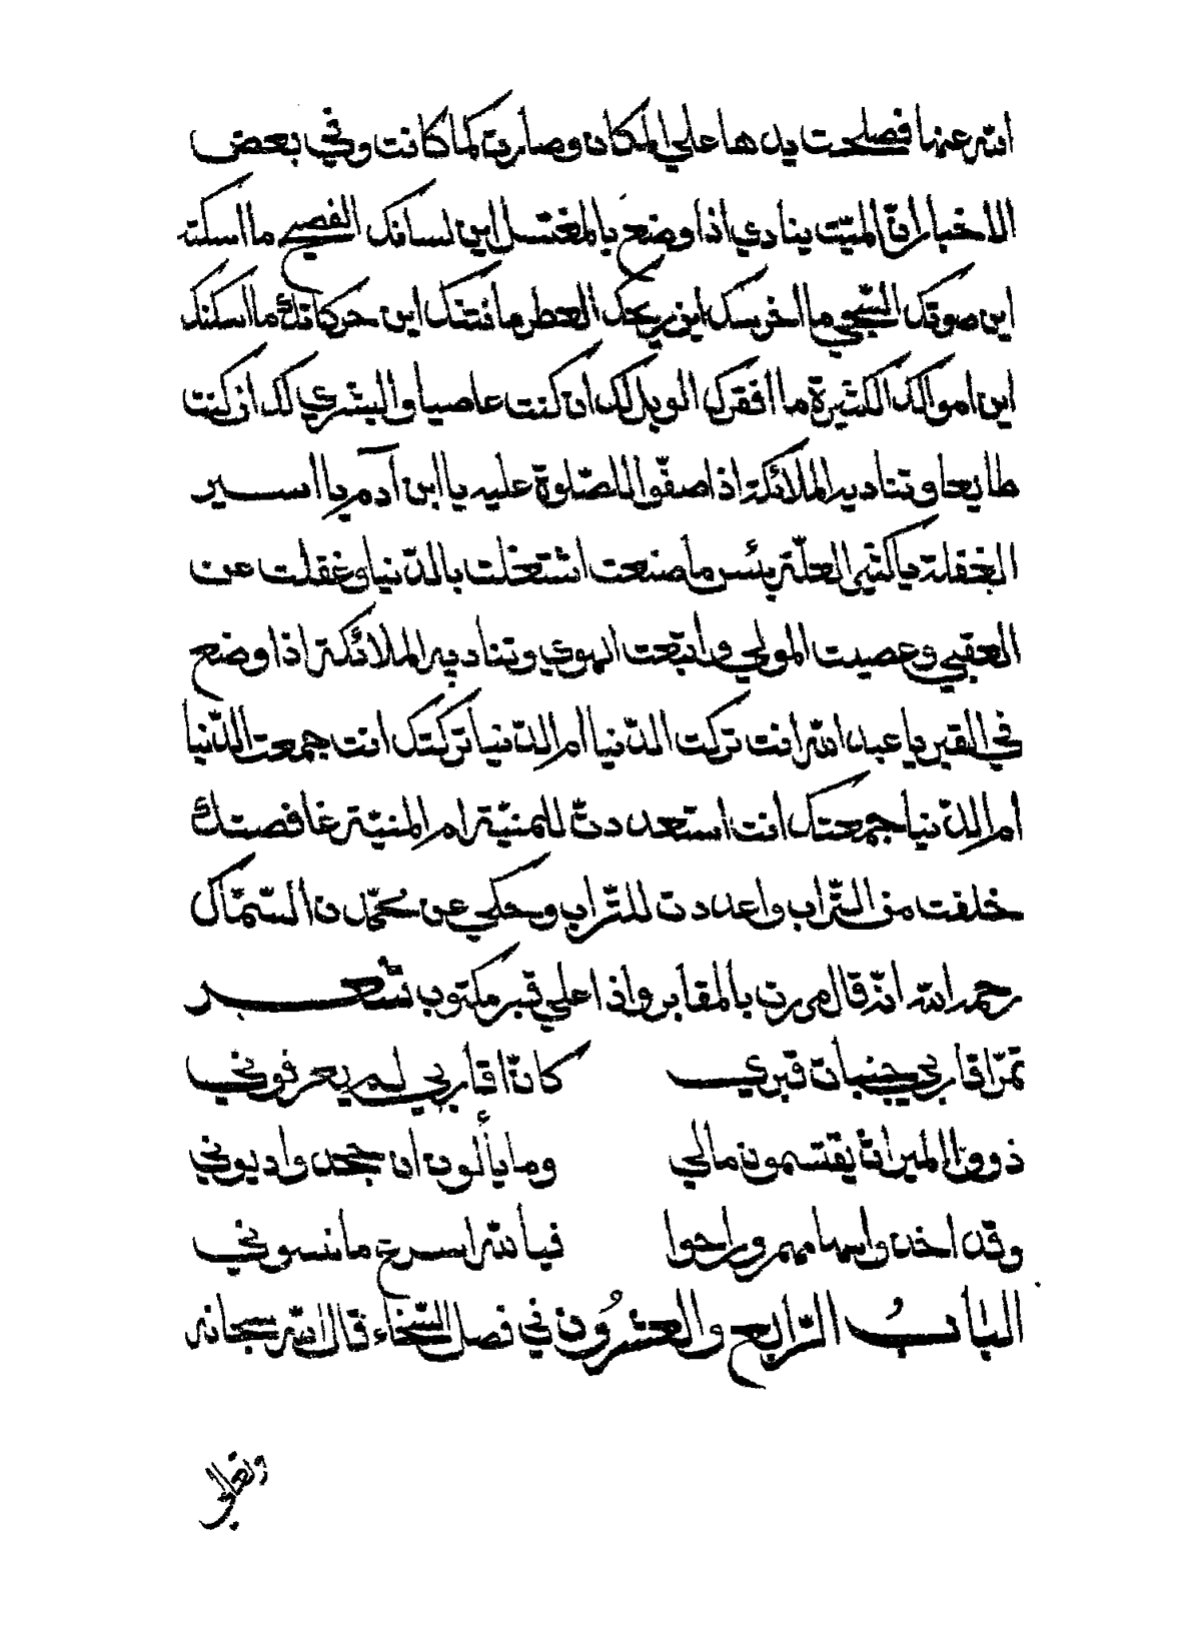 الله عنها فصلحت يدها علي المكان وصارت كما كانت وفي بعض
الاخبار انّ الميّت ينادي اذا وضع بالمغتسل اين لسانك الفصيح ما اسكته
اين صوتك الشّجي ما اخرسك اين ريحك العطر ما نتنك اين حركاتك ما اسكنك
اين اموالك الكثيرة ما افقرك الويل لك ان كنت عاصيا والبشري لك ان كنت
طايعا وتناديه الملائكة اذا صفّوا للصّلوة عليه يا ابن آدم يا اسير
الغفلة يا كثير العلّة بئس ما صنعت اشتغلت بالدّنيا وغفلت عن
العقبي وعصيت المولي واتبعت الهوي وتناديه الملائكة اذا وضع
في القبر يا عبد الله انت تركت الدّنيا ام الدّنيا تركتك انت جمعت الدّنيا
ام الدّنيا جمعتك انت استعددت للمنيّة ام المنيّة غافصتك
خلقت من التّراب واعددت للتّراب وحكي عن محمّد ن السّمّاك
رحمه الله انّه قال مررت بالمقابر واذا علي قبر مكتوب شعر
تمرّ اقاربي جنبات قبري كانّ اقاربي لم يعرفوني
ذووا الميراث يقتسمون مالي وما يألون ان جحدوا ديوني
وقد اخذوا سهامهم وراحوا فيا لله اسرع ما نسوني
الباب الرّابع والعشرون في فصل السّخاء قال الله سبحانه
وتعالى